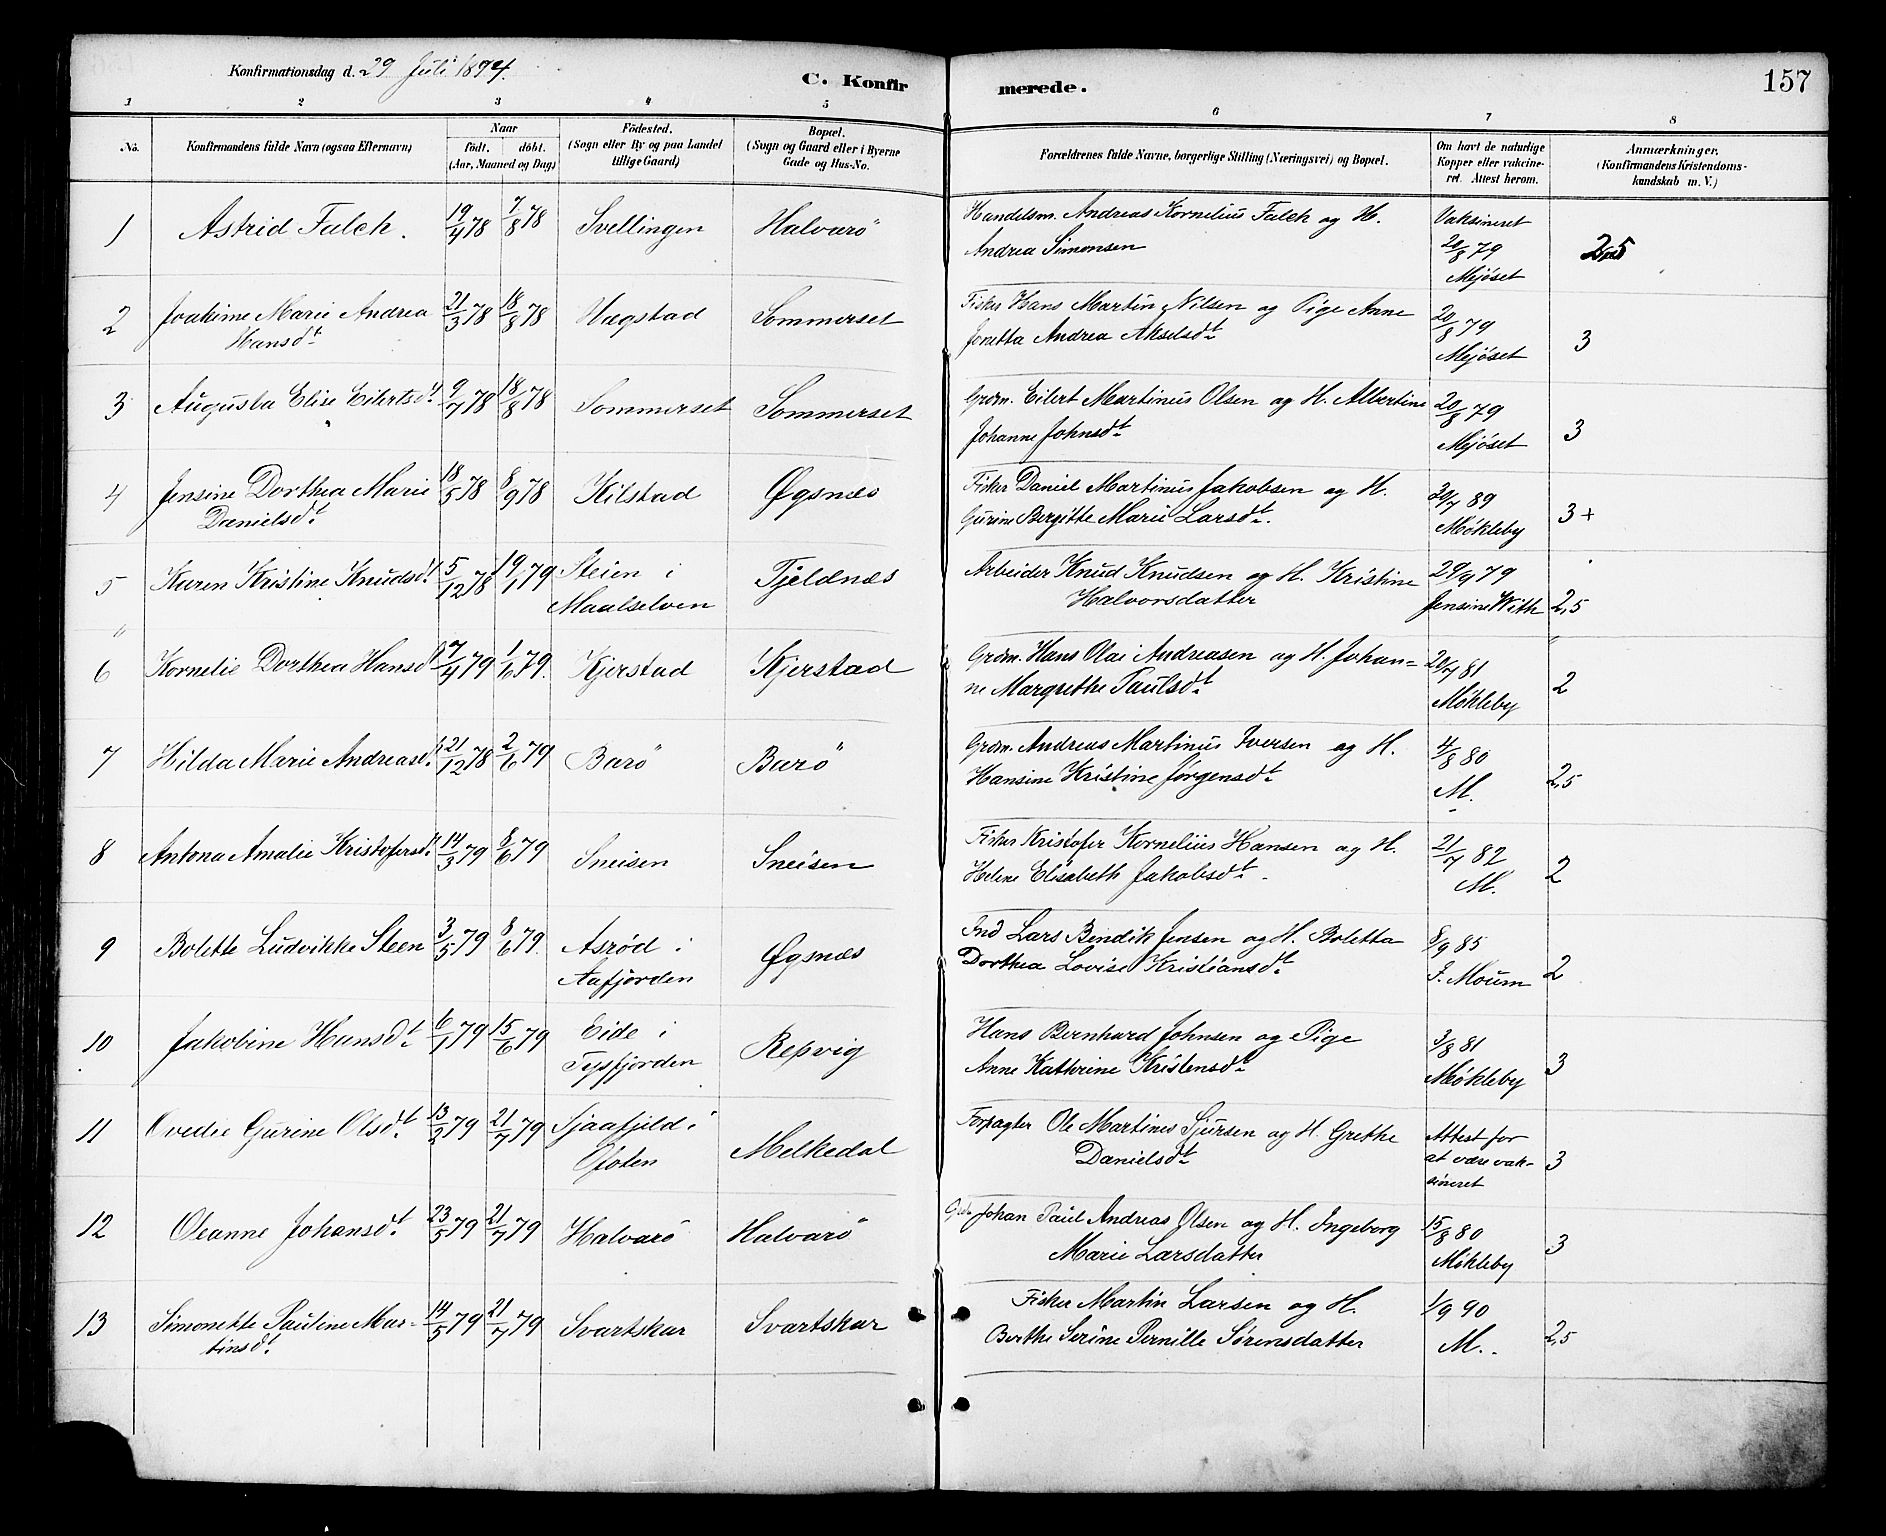 Konfirmationsdag d. 29 Juli 1894.
C. Konfir
merede.
157
1 2 3 4 5 6 7 8
No.
Konfirmandens fulde Navn (ogsaa Efternavn)
Naar
födt. döbt.
(Aar, Maaned og Dag)
Födested.
(Sogn eller By og paa Landet
tillige Gaard)
Bopæl.
(Sogn og Gaard eller i Byerne
Gade og Hus-No.
Forældrenes fulde Navne, borgerlige Stilling (Næringsvei) og Bopæl.
Om havt de naturlige
Kopper eller vakcine-
ret. Attest herom.
Anmærkninger.
(Konfirmandens Kristendoms-
kundskab m. V.)
1 Astrid Falch. 19/4 78 7/8 78 Svellingen Halvarö Handelsm. Andreas Kornelius Falch og H. Vaksineret
Andrea Simonsen 20/8 79 2,5
Mejöset
2 Joakime Marie Andrea 21/3 78 18/8 78 Hagstad Sommerset Fisker Hans Martin Nilsen og Pige Anne 20/8 79
Hansdt. Jonetta Andrea Akselsdt. Mejöset 3
3 Augusta Elise Eilertsdt. 9/7 78 18/8 78 Sommerset Sommerset Grdm. Eilert Martinus Olsen og H. Albertine 20/8 79
Johanne Johnsdt. Mejöset 3
4 Jensine Dorthea Marie 18/5 78 8/9 78 Kilstad Øgsnæs Fisker Daniel Martinus Jakobsen og H. 29/7 89
Danielsdt. Gurine Bergitte Marie Larsdt. Møkleby 3+
5 Karen Kristine Knudsdt. 5/12 78 19/1 79 Steien i Tjeldnæs Arbeider Knud Knudsen og H. Kristine 29/9 79
Maalselven Halvorsdatter Jensine With 2,5
6 Kornelie Dorthea Hansdt 7/4 79 1/6 79. Kjerstad Kjerstad Grdm. Hans Olai Andreasen og H. Johan- 20/7 81
ne Margrethe Paulsdt. Møkleby 2
7 Hilda Marie Andreasdt. 21/12 78 2/6 79 Barö Barö Grdm. Andreas Martinus Iversen og H. 4/8 80
Hansine Kristine Jørgensdt. M. 2,5
8 Antona Amalie Kristofersdt. 14/3 79 8/6 79 Sneisen Sneisen Fisker Kristofer Kornelius Hansen og H. 21/7 82
Helene Elisabeth Jakobsdt. M. 2
9 Bolette Ludvikke Steen 3/5 79 8/6 79. Asrød i Øgsnæs Ind Lars Bendik Jensen og H. Boletta 8/9 85
Aafjorden Dorthea Lovise Kristiansdt. J. Moum 2
10 Jakobine Hansdt. 6/1 79 15/6 79 Eide i Repvig Hans Bernhard Johnsen og Pige 3/8 81
Tysfjorden Anne Kathrine Kristensdt. Møkleby 3
11 Ovedie Gurine Olsdt. 13/2 79 21/7 79 Sjaafjeld i Melkedal Forpagter Ole Martines Sjursen og H. Grethe Attest for
Ofoten Danielsdt. at være vak- 3
sineret
12 Oleanne Johansdt. 23/5 79 21/7 79 Halvarö Halvarö Grdm Johan Paul Andreas Olsen og H. Ingeborg 15/8 80
Marie Larsdatter Møkleby 3
13 Simonette Pauline Mar- 14/5 79 21/7 79 Svartskar Svartskar Fisker Martin Larsen og H. 1/9 90
tinsdt. Berthe Serine Pernille Sørensdatter M. 2,5